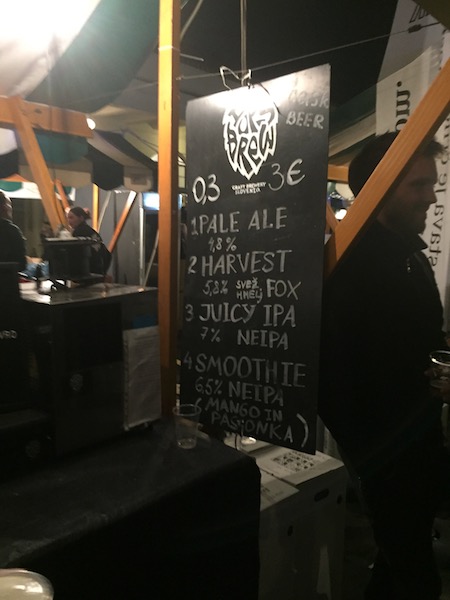 BEER
BREW
CRAFT BREWERY
SLOVENIA
0,3 3€
1 PALE ALE
4,8%
2 HARVEST
5,8% SVEŽ HMELJ FOX
3 JUICY IPA
7% NEIPA
4 SMOOTHIE
6,5% NEIPA
(MANGO IN
PASJONKA)